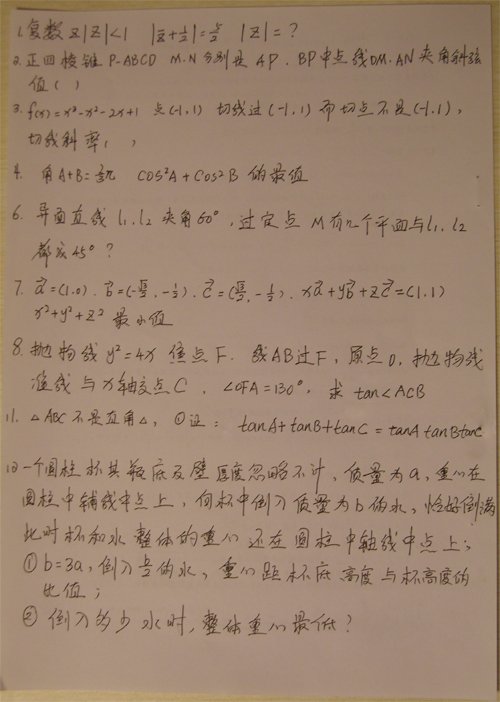 1. 复数 z |z|<1 |z̄+1/z|=5/2 |z|=?
2. 正四棱锥 P-ABCD M.N 分别是 AP. BP中点 线DM.AN 夹角斜弦
值( )
3. f(x)=x³-x²-2x+1 点(-1,1) 切线过(-1,1) 而切点不是(-1,1),
切线斜率( )
4. 角A+B= cos²A+cos²B 的最值
6. 异面直线 l₁.l₂ 夹角60°,过定点 M有几个平面与l₁.l₂
都成45°?
7. a⃗=(1.0). b⃗=(-√3/2,-1/2). c⃗=(√3/2,-1/2). xa⃗+yb⃗+zc⃗=(1.1)
x²+y²+z² 最小值
8. 抛物线 y²=4x 焦点F. 线AB过F,原点O,抛物线
准线与x轴交点C. ∠OFA=130°. 求 tan∠ACB
11. △ABC 不是直角△, ①证: tanA+tanB+tanC=tanA tanB tanC
10 一个圆柱杯其瓶底及壁厚度忽略不计,质量为a,重心在
圆柱中轴线中点上,向杯中倒入质量为b的水,恰好倒满
此时杯和水整体的重心还在圆柱中轴线中点上;
① b=3a,倒入b/2的水,重心距杯底高度与杯高度的
比值;
② 倒入多少水时,整体重心最低?